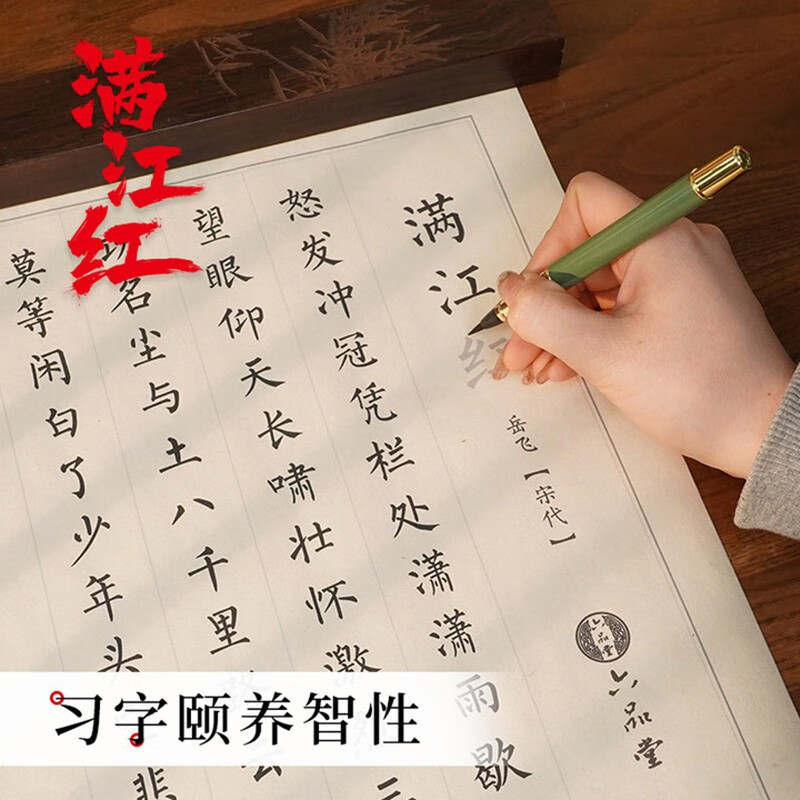 满江红
满江红
岳飞【宋代】
怒发冲冠凭栏处潇潇雨歇
望眼仰天长啸壮怀激
名尘与土八千里路云
莫等闲白了少年头
悲
六品堂
六品堂
习字颐养智性